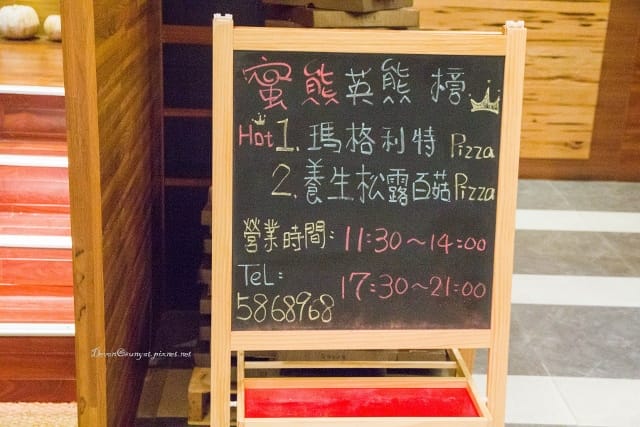 蜜熊英熊榜
Hot 1. 瑪格利特 Pizza
2. 養生松露百菇 Pizza
營業時間: 11:30~14:00
17:30~21:00
TeL:
5868968
Devon@sunyat.pixnet.net